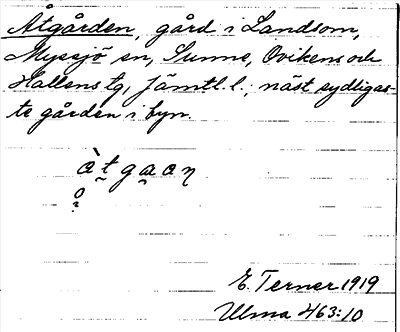 Åtgården, gård i Landsom,
Myssjö sn, Sunne, Ovikens och
Hallens tg, Jämtl. l.; näst sydligas-
te gården i byn.
E. Terner 1919
Ulma 463:10